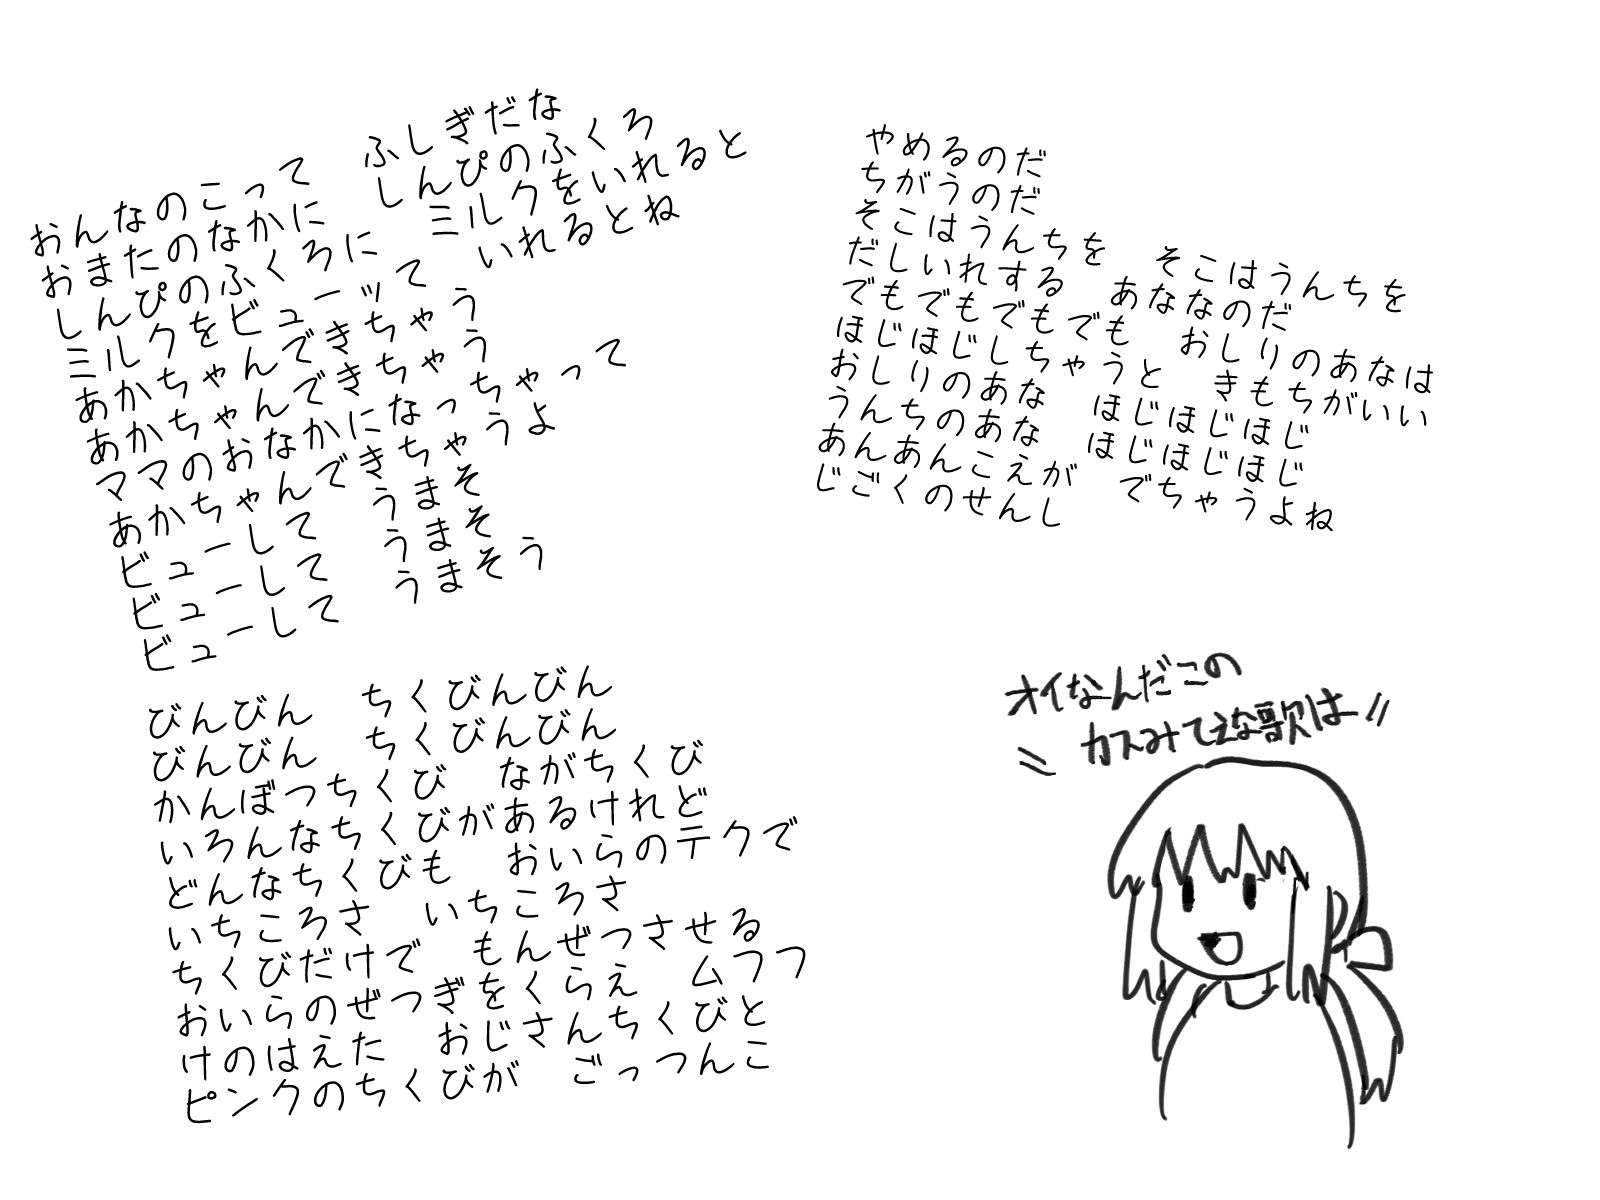 おんなのこって　ふしぎだな
おまたのなかに　しんぴのふくろ
しんぴのふくろに　ミルクをいれると
ミルクをビューッて　いれるとね
あかちゃんできちゃう
あかちゃんできちゃう
ママのおなかになっちゃって
あかちゃんできちゃうよ
ビューして　うまそ
ビューして　うまそ
ビューして　うまそう
びんびん　ちくびんびん
びんびん　ちくびんびん
かんぼつちくび　ながちくび
いろんなちくびがあるけれど
どんなちくびも　おいらのテクで
いちころさ　いちころさ
ちくびだけで　もんぜつさせる
おいらのぜつぎをくらえ　ムフフ
けのはえた　おじさんちくびと
ピンクのちくびが　ごっつんこ
やめるのだ
ちがうのだ
そこはうんちを　そこはうんちを
だしいれする　あななのだ
でもでもでもでも　おしりのあなは
ほじほじしちゃうと　きもちがいい
おしりのあな　ほじほじほじ
うんちのあな　ほじほじほじ
あんあんこえが　でちゃうよね
じごくのせんし
オイなんだこの
カスみてえな歌は